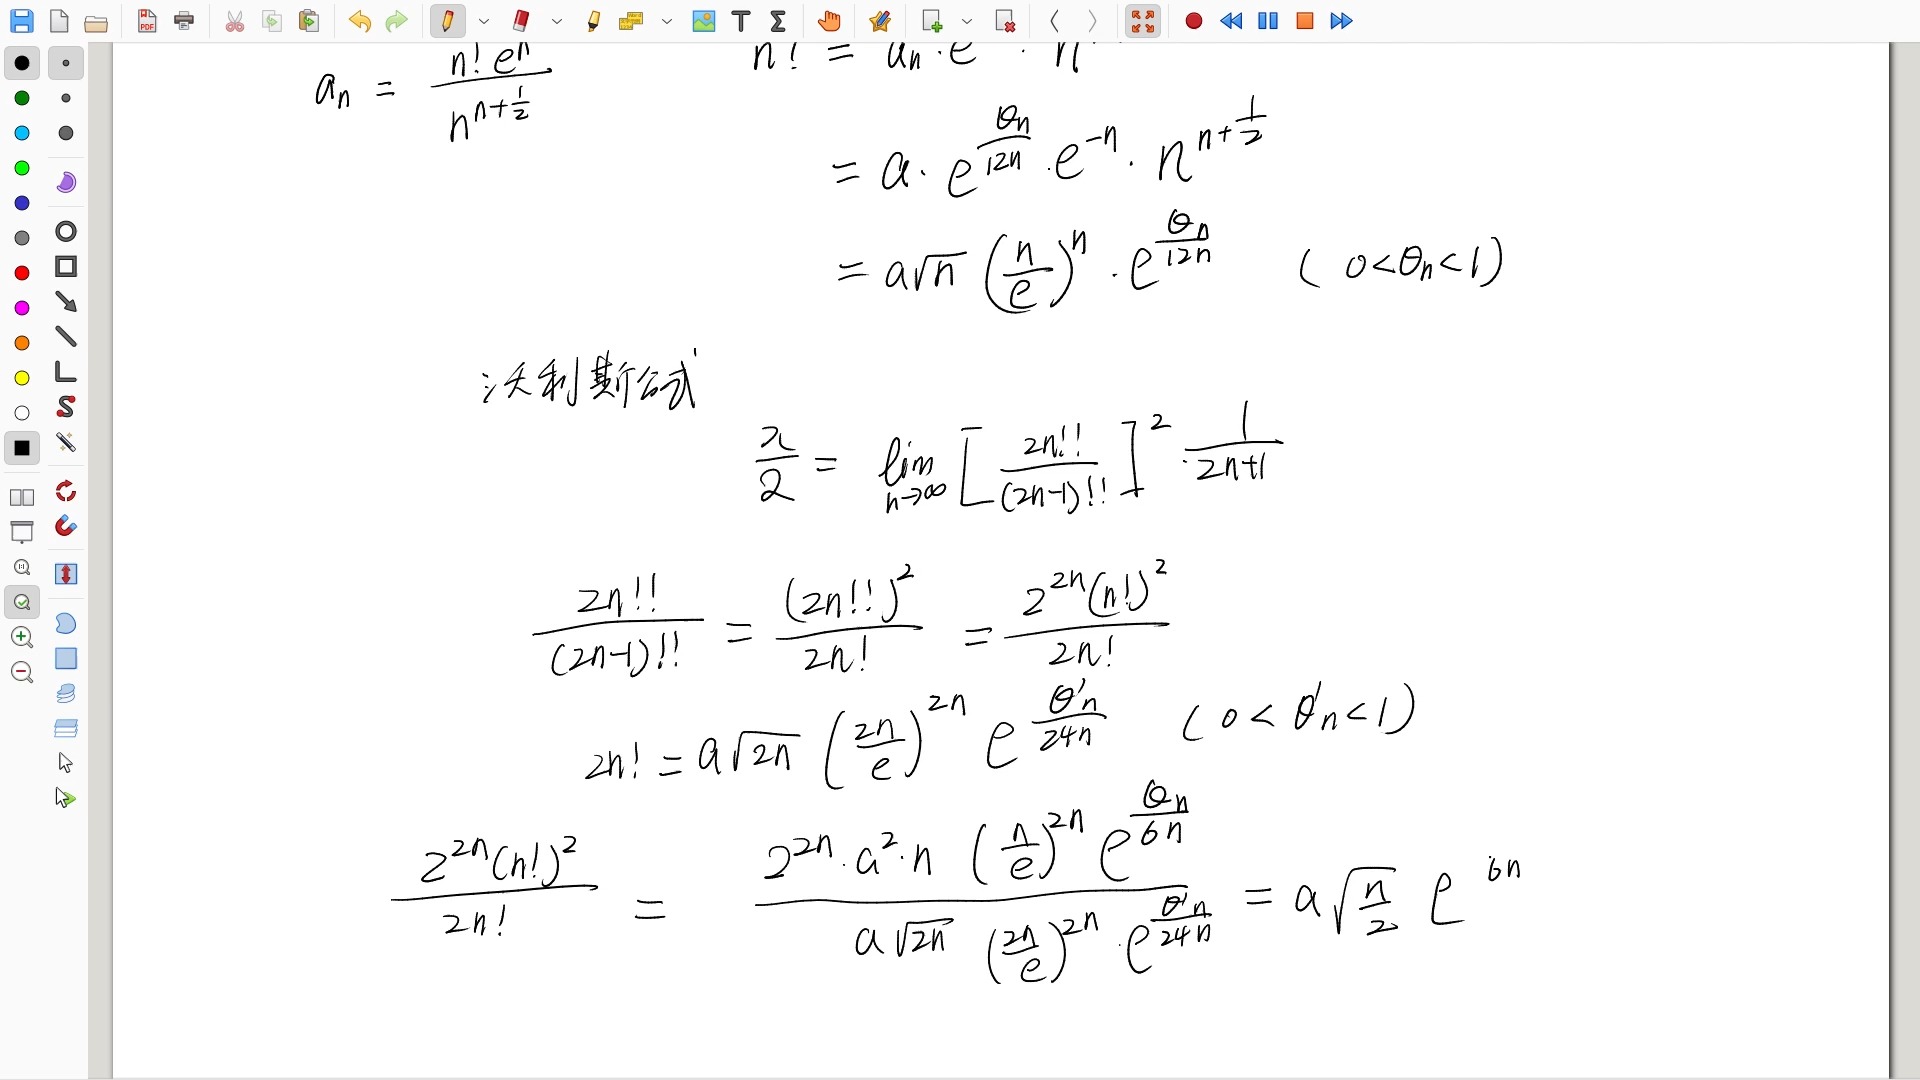 aₙ = n! eⁿ / n^(n+1/2)
n! = aₙ · e · n
= a · e^(θₙ/12n) · e^(-n) · n^(n+1/2)
= a√n (n/e)^n · e^(θₙ/12n) ( 0<θₙ<1)
沃利斯公式
π/2 = lim n→∞ [2n!!/(2n-1)!!]² · 1/2n+1
2n!!/(2n-1)!! = (2n!!)²/2n! = 2^(2n)(n!)²/2n!
2n! = a√2n (2n/e)^(2n) e^(θ'n/24n) ( 0<θ'n<1)
2^(2n)(n!)²/2n! = 2^(2n)·a²·n (n/e)^(2n) e^(θₙ/6n) / a√2n (2n/e)^(2n) · e^(θ'n/24n) = a√(n/2) e^(6n)